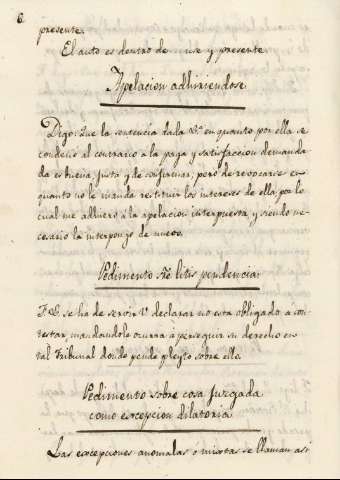 6.
presente.
El auto es dentro de use y presente
Apelacion adhiriendose.
Digo: Que la sentencia dada &ª en quanto por ella se
condenó al contrario à la paga y satisfaccion demanda-
da es buena, justa y de confirmar; pero de revocarse en
quanto no le manda restituir los intereses de ella por lo
cual me adhiero à la apelacion interpuesta, y siendo ne-
cesario la interpongo de nuevo.
Pedimento litis pendencia.
F. G. se ha de servir V. declarar no esta obligado à con-
testar, mandandole ocurra à perseguir su derecho en
tal Tribunal donde pende pleyto sobre ello.
Pedimento sobre cosa Juzgada
como excepcion dilatoria.
Las excepciones anomalas o mixtas se llaman asi